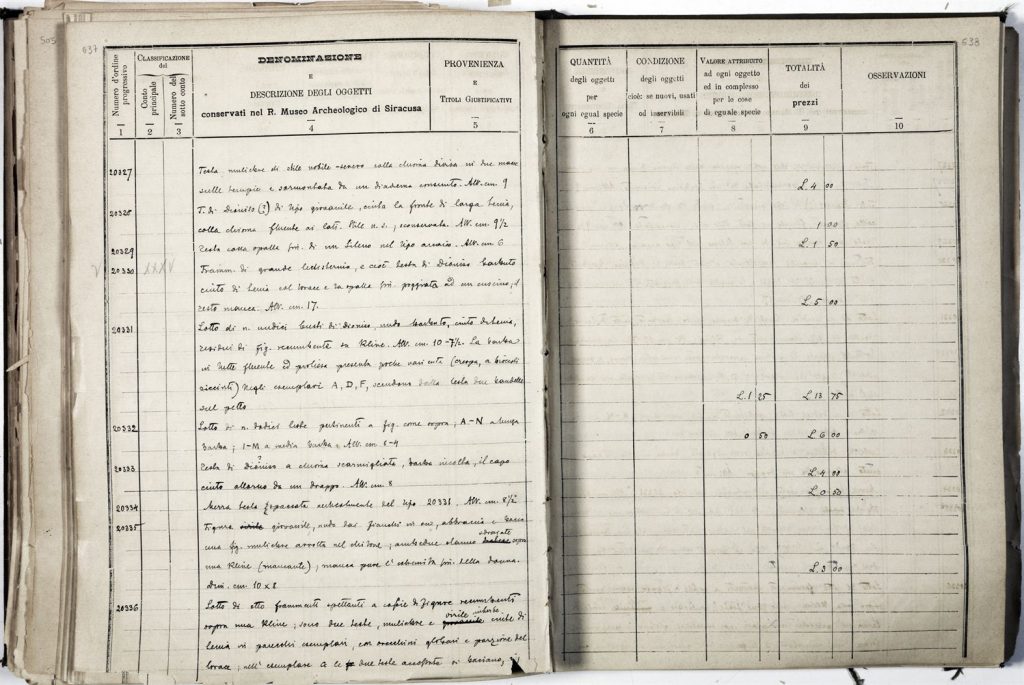 505
637
Numero d'ordine progressivo
CLASSIFICAZIONE
del
Conto principale
Numero del sotto conto
DENOMINAZIONE
E
DESCRIZIONE DEGLI OGGETTI
conservati nel R. Museo Archeologico di Siracusa
PROVENIENZA
E
TITOLI GIUSTIFICATIVI
1 2 3 4 5
20327 Testa muliebre di stile nobile-severo colla chioma divisa in due masse
sulle tempie e sormontata da un diadema consunto. Alt. cm. 9
20328 T. di Dioniso (?) di tipo giovanile, cinta la fronte di larga tenia,
colla chioma fluente ai lati. Stile n. s.; sconservata. Alt. cm. 9 1/2
20329 Testa colla spalla sin. di un Sileno nel tipo arcaico. Alt. cm 6
V 20330 XXXV Framm. di grande lectisternio, e cioè testa di Dioniso barbuto
cinto di tenia col torace e la spalla sin. poggiata ad un cuscino; il
resto manca. Alt. cm. 17.
20331 Lotto di n. undici busti di dioniso, nudo barbato, cinto da tenia,
residui di fig. recumbente su Kline. Alt. cm. 10-7 1/2. La barba
in tutte fluente ed prolissa presenta poche varianti (crespa, a
riccioli) Negli esemplari A, D, F, scendono dalla testa due bandelle
sul petto
20332 Lotto di n. dodici teste pertinenti a fig. come sopra; A-N a lunga
barba; I-M a media barba. Alt. cm. 6-4
20333 Testa di Dioniso? a chioma scarmigliata, barba incolta, il capo
cinto attorno da un drappo. Alt. cm. 8
20334 Mezza testa spaccata verticalmente del tipo 20331. Alt. cm. 8 1/2
20335 Figura virile giovanile, nudo dai fianchi in su, abbraccia e bacia
una fig. muliebre avvolta nel chitone; ambedue stanno sdraiate sopra
una Kline (mancante); manca pure l'estremità sin. della donna.
Dim. cm. 10 x 8
20336 Lotto di otto frammenti spettanti a copie di figure recumbenti
sopra una Kline; sono due teste, muliebre e giovanile virile imberbe cinte di
tenia in parecchi esemplari, con orecchini globari e porzione del
torace; nell'esemplare A le due teste accostate si baciano, il
638
QUANTITÀ
degli oggetti
per
ogni egual specie
6
CONDIZIONE
degli oggetti
cioè: se nuovi, usati
od inservibili
7
VALORE ATTRIBUITO
ad ogni oggetto
ed in complesso
per le cose
di eguale specie
8
TOTALITÀ
dei
prezzi
9
OSSERVAZIONI
10
L. 4 00
1 00
L. 1 50
L. 5 00
L. 1 25 L. 13 75
0 50 L. 6 00
L. 4 00
L. 0 50
L. 3 00